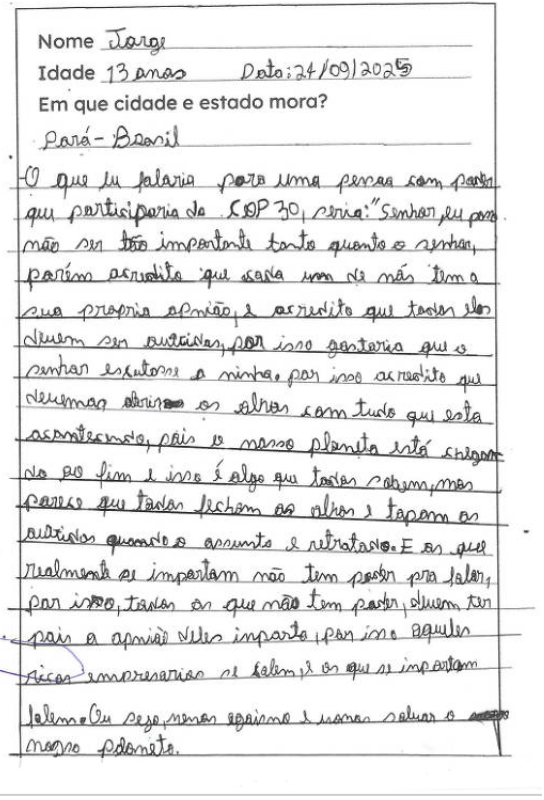 Nome Jorge
Idade 13 anos Data: 24/09/2025
Em que cidade e estado mora?
Pará - Brasil
O que eu falaria para uma pessoa com poder
que participaria da COP 30, seria: "Senhor, eu posso
não ser tão importante tanto quanto o senhor,
porém acredito que cada um de nós tem a
sua propria opnião, e acredito que todas elas
devem ser ouvidas, por isso gostaria que o
senhor escutasse a minha, por isso acredito que
devemos abrir os olhos com tudo que esta
acontecendo, pois o nosso planeta está chegan
do ao fim e isso é algo que todos sabem, mas
parece que todos fecham os olhos e tapam os
ouvidos quando o assunto e retratado. E os que
realmente se importam não tem poder pra falar,
por isso, todos os que não tem poder, devem ter
pois a opnião deles inporta, por isso aqueles
ricos empresarios se calem, e os que se inportam
falem. Ou seja, menos egoismo e vamos salvar o
nosso planeta.